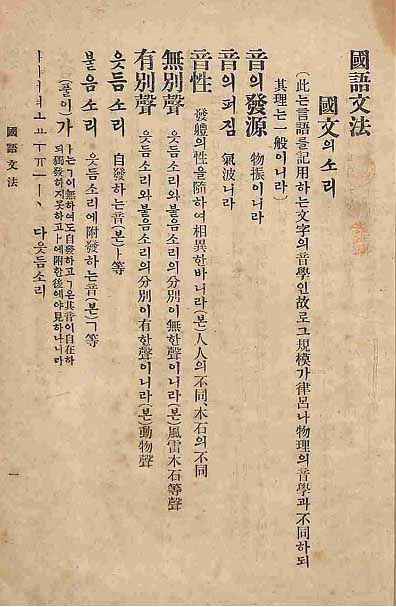 國語文法
國文의소리
(此는言語를記用하는文字의音學인故로그規模가律呂나物理의音學과不同하되
其理는一般이니라)
音의發源 物振이니라
音의펴짐 氣波니라
音性 發軆의性을隨하여相異한바니라(본)人人의不同、木石의不同
無別聲 웃듬소리와붙음소리의分別이無한聲이니라(본)風雷木石等聲
有別聲 웃듬소리와붙음소리의分別이有한聲이니라(본)動物聲
웃듬소리 自發하는音(본)ㅏ等
붙음소리 웃듬소리에附發하는音(본)ㄱ等
(풀이)가 ㅏ는ㄱ이無하여도自發하고ㄱ은其音이自在하
되獨發하지못하고ㅏ에附한後에야見하나니라
ㅏㅑㅓㅕㅗㅛㅜㅠㅡㅣㆍ 다웃듬소리
國語文法
一